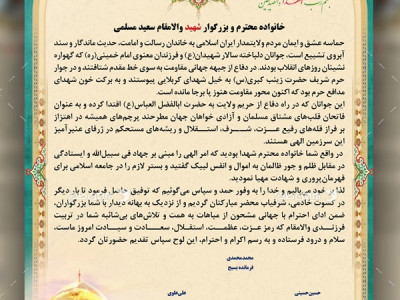 خانواده محترم و بزرگوار شهید والامقام سعید مسلمی
حماسه عشق و ایمان مردم ولایتمدار ایران اسلامی به خاندان رسالت و امامت، حدیث ماندگار و سند
آبروی تشییع است، جوانان دلباخته سالار شهیدان(ع) و فرزندان معنوی امام خمینی(ره) که گهواره
نشینان روزهای انقلاب بودند، در دفاع از جبهه جهانی مقاومت به سوی خط مقدم شتافتند و در جوار
حرم شریف حضرت زینب کبری(س) به خیل شهدای کربلایی پیوستند و به برکت خون شهدای
مدافع حرم بود که اکنون محور مقاومت هنوز پا برجا مانده است.
این جوانان که در راه دفاع از حریم ولایت به حضرت ابالفضل العباس(ع) اقتدا کرده و به عنوان
فاتحان قلب‌های مشتاق مسلمان و آزادی خواهان جهان مطرحند پرچم‌های همیشه در اهتزاز
بر فراز قله‌های رفیع عزت، شرف، استقلال و ریشه‌های مستحکم در ژرفای عنبرآمیز
این سرزمین الهی هستند.
در واقع شما خانواده محترم شهدا بودید که امر الهی را مبنی بر جهاد فی سبیل‌الله و ایستادگی
در مقابل ظلم و جور ظالمان به اموال و انفس لبیک گفتید و بستر لازم را در جامعه اسلامی برای
قهرمان‌پروری و شهادت مهیا نمودید.
لذا بر خود می‌بالیم و خدا را به وفور حمد و سپاس می‌گوئیم که توفیق حاصل فرمود تا بار دیگر
در کسوت خادمی، شرفیاب محضر مبارکتان گردیم و از نزدیک به بهانه دیدار با شما بزرگواران،
ضمن ادای احترام با جهانی مشحون از مباهات به همت و تلاش‌های بی‌شائبه شما در تربیت
فرزندی والامقام که رمز عزت، عظمت، استقلال، سعادت و سیادت امروز ماست،
سلام و درود فرستاده و به رسم اکرام و احترام، این لوح سپاس تقدیم حضورتان گردد.
محمد محمدی
فرمانده بسیج
حسین حسینی
علی علوی